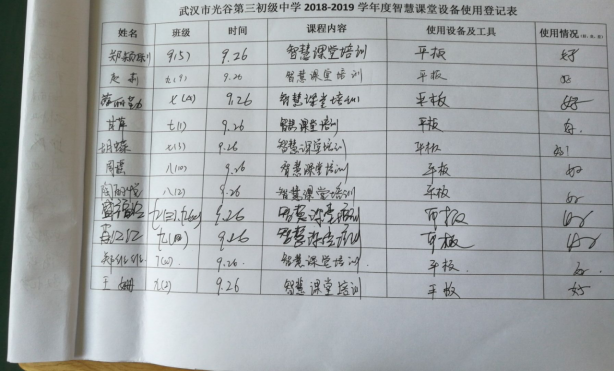 武汉市光谷第三初级中学 2018-2019 学年度智慧课堂设备使用登记表
姓名 班级 时间 课程内容 使用设备及工具 使用情况
9(5) 9.26 智慧课堂培训 平板 好
七(9) 9.26 智慧课堂培训 平板 好
七(2) 9.26 智慧课堂培训 平板 好
甘草 七(1) 9.26 智慧课堂培训 平板 好
胡蝶 七(3) 9.26 智慧课堂培训 平板 好
周蕾 八(10) 9.26 智慧课堂培训 平板 好
八(2) 9.26 智慧课堂培训 平板 好
9.26 智慧课堂培训 平板 好
9.26 智慧课堂培训 平板 好
7(2) 9.26. 智慧课堂培训. 平板. 好.
王姗 九(2) 9.26 智慧课堂培训 平板 好